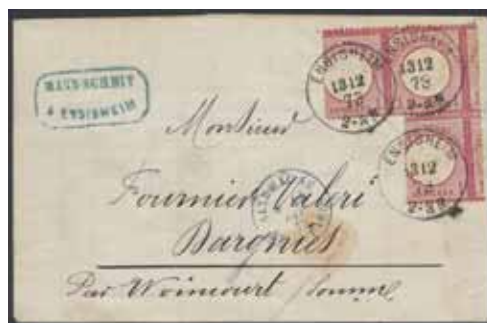 MANN-SCHMIT
ENSISHEIM
ENSISHEIM
13 12
73
2-3N
ENSISHEIM
13 12
73
2-3N
ENSISHEIM
13 12
2-3N
Monsieur
Fournier Valeri
Dargnies
Par Woincourt Somme